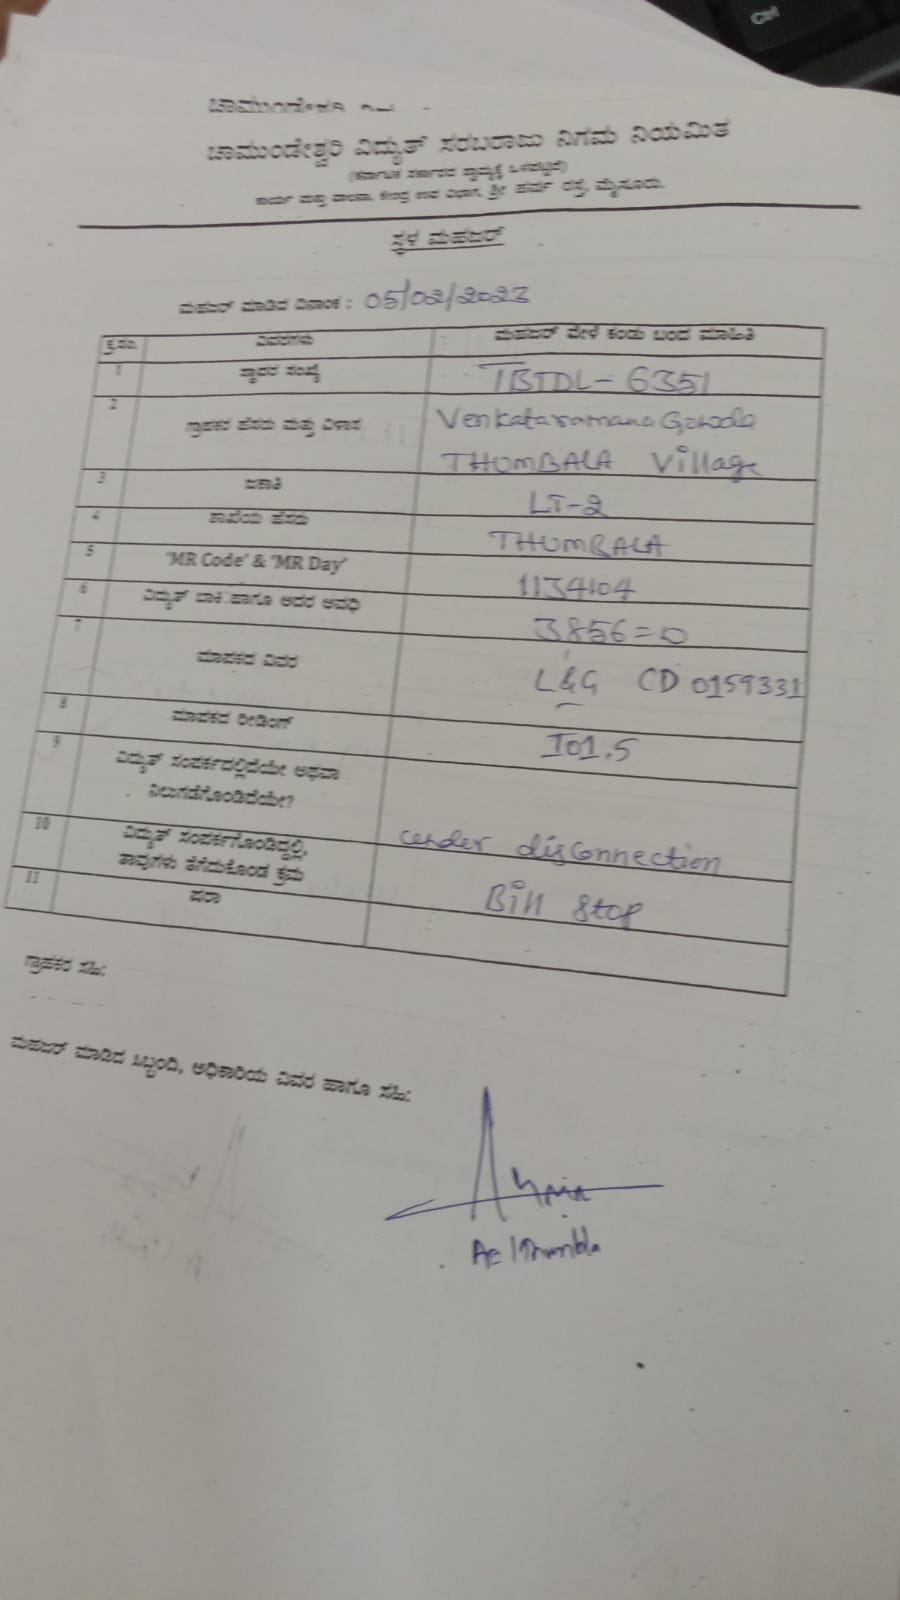 ಚಾಮುಂಡೇಶ್ವರಿ ವಿದ್ಯುತ್ ಸರಬರಾಜು ನಿಗಮ ನಿಯಮಿತ
(ಕರ್ನಾಟಕ ಸರ್ಕಾರದ ಸ್ವಾಮ್ಯಕ್ಕೆ ಒಳಪಟ್ಟಿದೆ)
ಕಾರ್ಯ ಮತ್ತು ಪಾಲನಾ, ಕೇಂದ್ರ ಉಪ ವಿಭಾಗ, ಶ್ರೀ ಹರ್ಷ ರಸ್ತೆ, ಮೈಸೂರು.
ಸ್ಥಳ ಮಹಜರ್
ಮಹಜರ್ ಮಾಡಿದ ದಿನಾಂಕ : 05/02/2023
ಕ್ರ.ಸಂ. ವಿವರಗಳು ಮಹಜರ್ ವೇಳೆ ಕಂಡು ಬಂದ ಮಾಹಿತಿ
1 ಸ್ಥಾವರ ಸಂಖ್ಯೆ TBTDL-6351
2 ಗ್ರಾಹಕರ ಹೆಸರು ಮತ್ತು ವಿಳಾಸ Venkataramana Gowda
THUMBALA Village
3 ಜಕಾತಿ LT-2
4 ಶಾಖೆಯ ಹೆಸರು THUMBALA
5 'MR Code' & 'MR Day' 1134104
6 ವಿದ್ಯುತ್ ಬಾಕಿ ಹಾಗೂ ಅದರ ಅವಧಿ 3856=0
7 ಮಾಪಕದ ವಿವರ L&G CD 0159331
8 ಮಾಪಕದ ರೀಡಿಂಗ್ 101.5
9 ವಿದ್ಯುತ್ ಸಂಪರ್ಕದಲ್ಲಿದೆಯೇ ಅಥವಾ
ನಿಲುಗಡೆಗೊಂಡಿದೆಯೇ?
10 ವಿದ್ಯುತ್ ಸಂಪರ್ಕಗೊಂಡಿದ್ದಲ್ಲಿ, under disconnection
ತಾವುಗಳು ತೆಗೆದುಕೊಂಡ ಕ್ರಮ
11 ಷರಾ Bill stop
ಗ್ರಾಹಕರ ಸಹಿ:
ಮಹಜರ್ ಮಾಡಿದ ಸಿಬ್ಬಂದಿ, ಅಧಿಕಾರಿಯ ವಿವರ ಹಾಗೂ ಸಹಿ:
AE/Thumbla
Ctrl